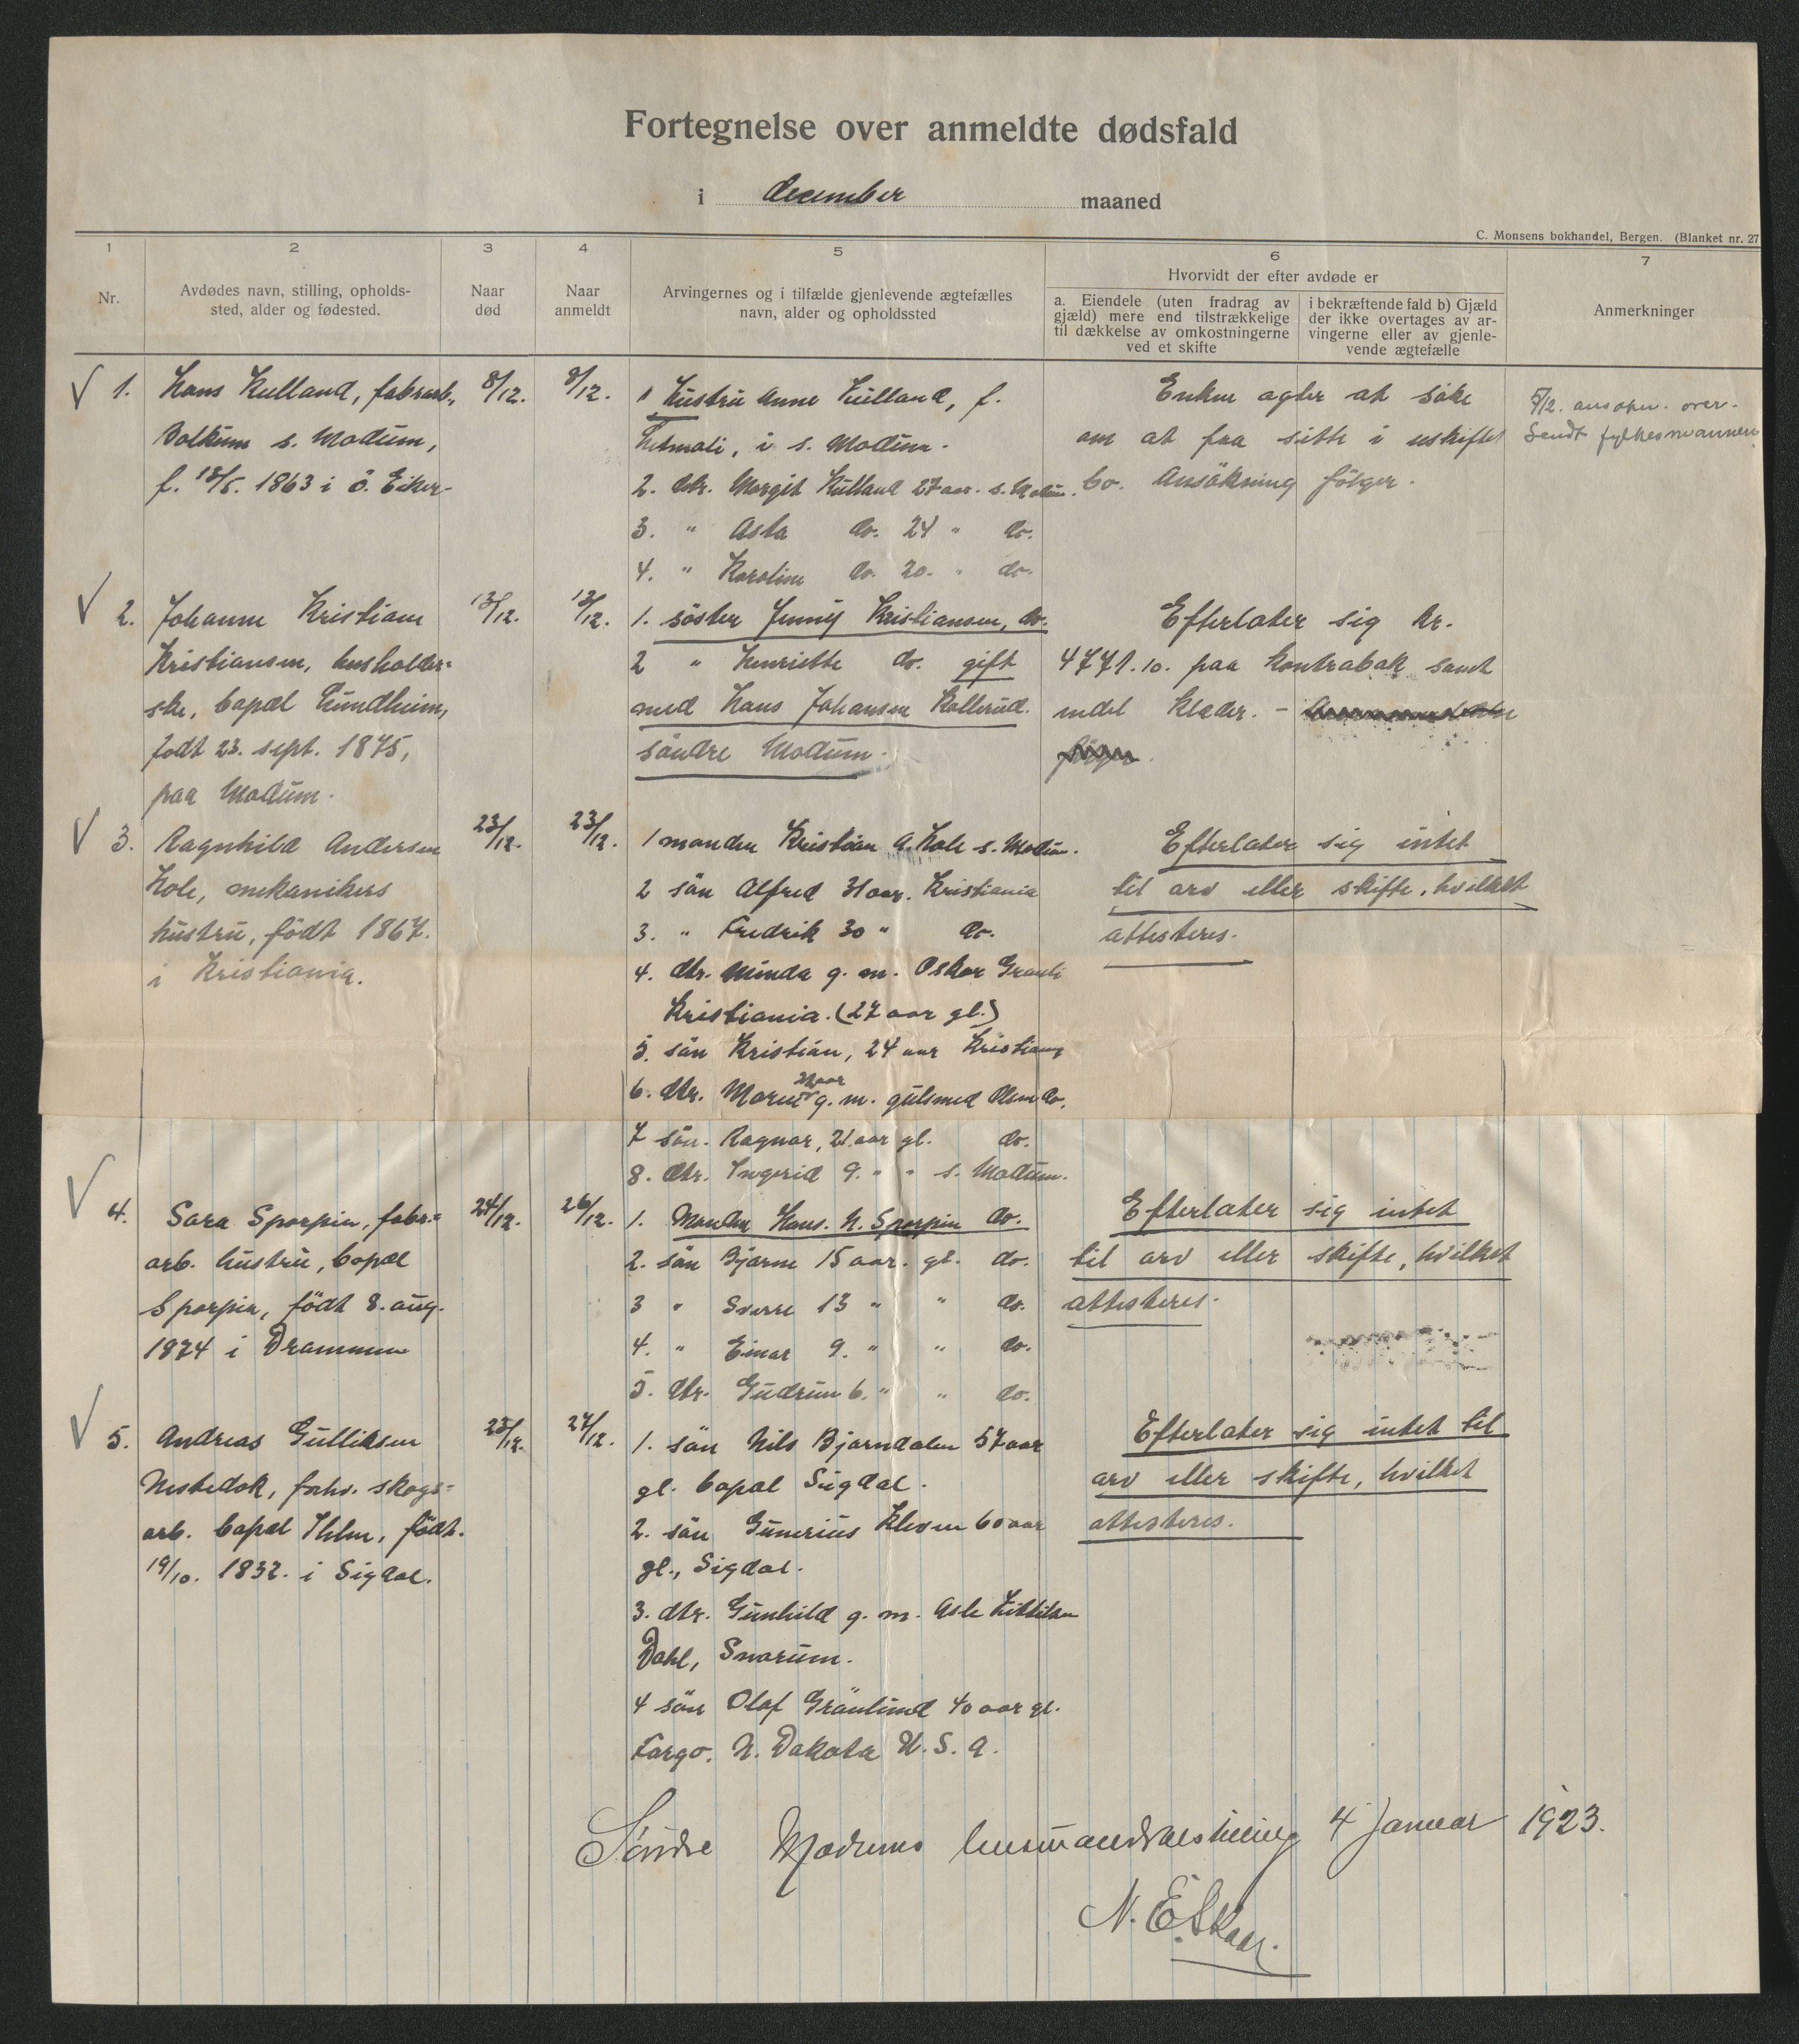 Fortegnelse over anmeldte dødsfald
i december maaned
C. Monsens bokhandel, Bergen. (Blanket nr. 27
1 2 3 4 5 6 7
Nr.
Avdødes navn, stilling, opholds-
sted, alder og fødested.
Naar
død
Naar
anmeldt
Arvingernes og i tilfælde gjenlevende ægtefælles
navn, alder og opholdssted
Hvorvidt der efter avdøde er
a. Eiendele (uten fradrag av
gjæld) mere end tilstrækkelige
til dækkelse av omkostningerne
ved et skifte
i bekræftende fald b) Gjæld
der ikke overtages av ar-
vingerne eller av gjenle-
vende ægtefælle
Anmerkninger
1. Hans Kulland, fabrarb.,
s. Modum,
f. 1863 i ö. Eiker.
8/12.
9/12.
1 Hustru Anne Kulland, f.
i s. Modum.
2. dtr. Margit Kulland 27 aar. s. Modum.
3. " Asta do. 24 " do.
4. " Karoline do. 20. " do.
Enken agter at söke
om at faa sitte i uskiftet
bo. Ansökning fölger.
5/12. ansökn. over-
sendt fylkesmannen
2. Johanne Kristiane
Kristiansen, husholder=
ske, bopæl Sundheim,
født 23. sept. 1875,
paa Modum.
13/12.
13/12.
1. söster Jenny Kristiansen, do.
2 " Henriette do. gift
med Hans Johansen Kollerud.
söndre Modum.
Efterlater sig kr.
4771.10. paa kontrabok samt
endel klæder. -
3. Ragnhild Andersen
Hole, mekanikers
hustru, födt 1867.
i Kristiania.
23/12.
23/12.
1 manden Kristian A. Hole s. Modum.
2 sön Alfred 31 aar. Kristiania
3. " Fredrik 30 " do.
4. dtr. Minda g. m. Oskar
Kristiania. (27 aar gl.)
5. sön Kristian, 24 aar Kristiania
6. dtr. g. m. gulsmed Olsen do.
7 sön. Ragnar, 21 aar gl. do.
8. dtr. Ingerid 9. " " s. Modum.
Efterlater sig intet
til arv eller skifte, hvilket
attesteres.
4. Sara Sporpin, fabr.=
arb. hustru, bopæl
Sporpin, födt 8. aug.
1874 i Drammen
24/12.
26/12.
1. Manden Hans. N. Sporpin do.
2. sön Bjarne 15 aar. gl. do.
3 " Sverre 13 " " do.
4. " Einar 9. " " do.
5. dtr. Gudrun 6. " " do.
Efterlater sig intet
til arv eller skifte, hvilket
attesteres.
5. Andreas Gulliksen
forhv. skogs=
arb. bopæl födt.
19/10. 1832. i Sigdal.
25/12.
27/12.
1. sön Nils Bjørndalen 57 aar
gl. bopæl Sigdal.
2. sön Gunerius Kleven 60 aar
gl., Sigdal.
3. dtr. Gunhild g. m. Asle Kittilsen
Dahl, Snarum.
4 sön Olaf Grönlund 40 aar gl.
Fargo. N. Dakota U. S. A.
Efterlater sig intet til
arv eller skifte, hvilket
attesteres.
Söndre Modums lensmandsbestilling 4 januar 1923.
N. E. Skaar.